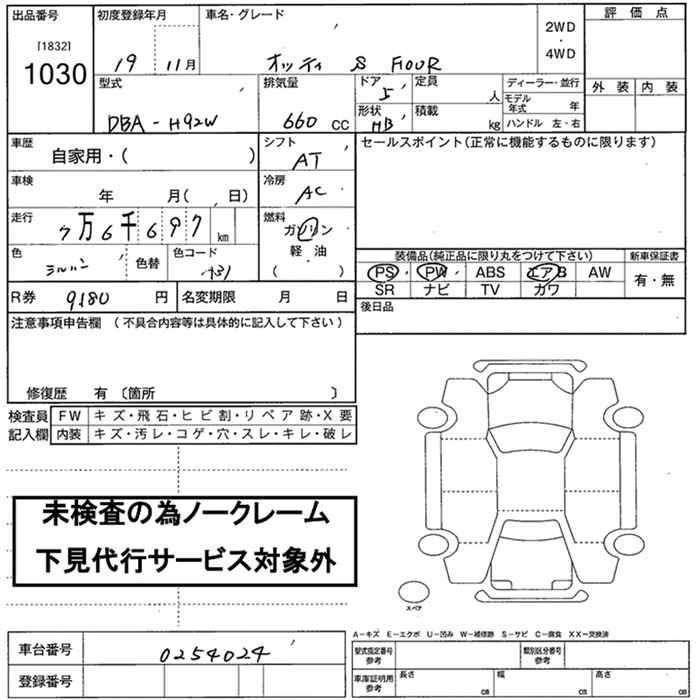 出品番号 初度登録年月 車名・グレード 2WD ・ 4WD 評価点
[1832]
1030
19 11月 オッティ S FOUR
型式 排気量 ドア 5 定員 人 ディーラー・並行 外装 内装
DBA-H92W 660 CC 形状 HB 積載 kg モデル年式 年 ハンドル 左・右
車歴 自家用・( ) シフト AT セールスポイント(正常に機能するものに限ります)
車検 年 月( 日) 冷房 AC
走行 7万6千697 km 燃料 ガソリン 軽・油 ( )
色 シルバー 色替 色コード 装備品(純正品に限り丸をつけて下さい) 新車保証書
PS PW ABS エアB AW 有・無
SR ナビ TV カワ
R券 9180 円 名変期限 月 日 後日品
注意事項申告欄 (不具合内容等は具体的に記入して下さい)
修復歴 有 〔箇所 〕
検査員 FW キズ・飛石・ヒビ割・リペア跡・X要
記入欄 内装 キズ・汚レ・コゲ・穴・スレ・キレ・破レ
未検査の為ノークレーム
下見代行サービス対象外
スペア
A-キズ E-エクボ U-凹み W-補修跡 S-サビ C-腐食 XX-交換済
車台番号 0254024 型式指定番号 参考 類別区分番号 参考
登録番号 車庫証明用 参考 長さ cm 幅 cm 高さ cm